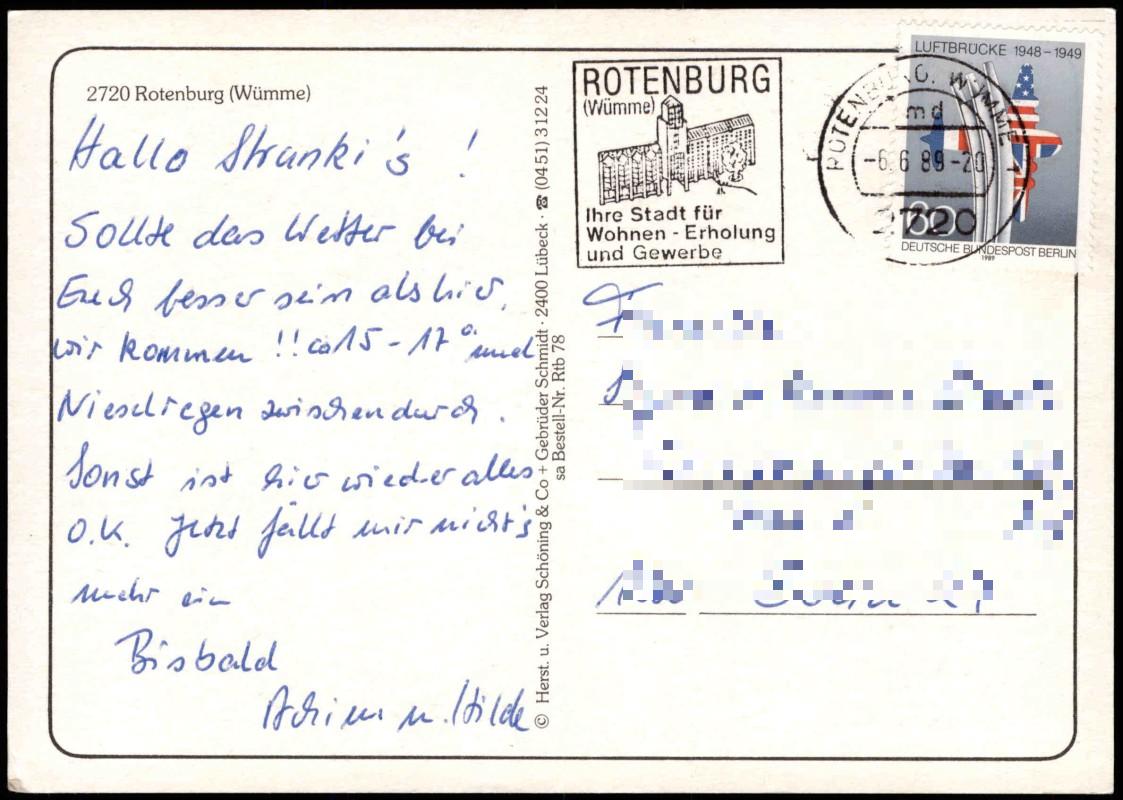 2720 Rotenburg (Wümme)
Hallo Stranki's !
Sollte das Wetter bei
Euch besser sein als hier,
wir kommen !! ca 15 - 17° und
Nieselregen zwischendurch.
Sonst ist hier wieder alles
O.K. Jetzt fällt mir nicht's
mehr ein
Bisbald
Achim u. Hilde
© Herst. u. Verlag Schöning & Co + Gebrüder Schmidt · 2400 Lübeck · ☎ (0451) 31224
sa Bestell-Nr. Rtb 78
ROTENBURG
(Wümme)
Ihre Stadt für
Wohnen - Erholung
und Gewerbe
ROTENBURG, WÜMME 1
md
-6.6.89-20
2720
LUFTBRÜCKE 1948-1949
60
DEUTSCHE BUNDESPOST BERLIN
1989